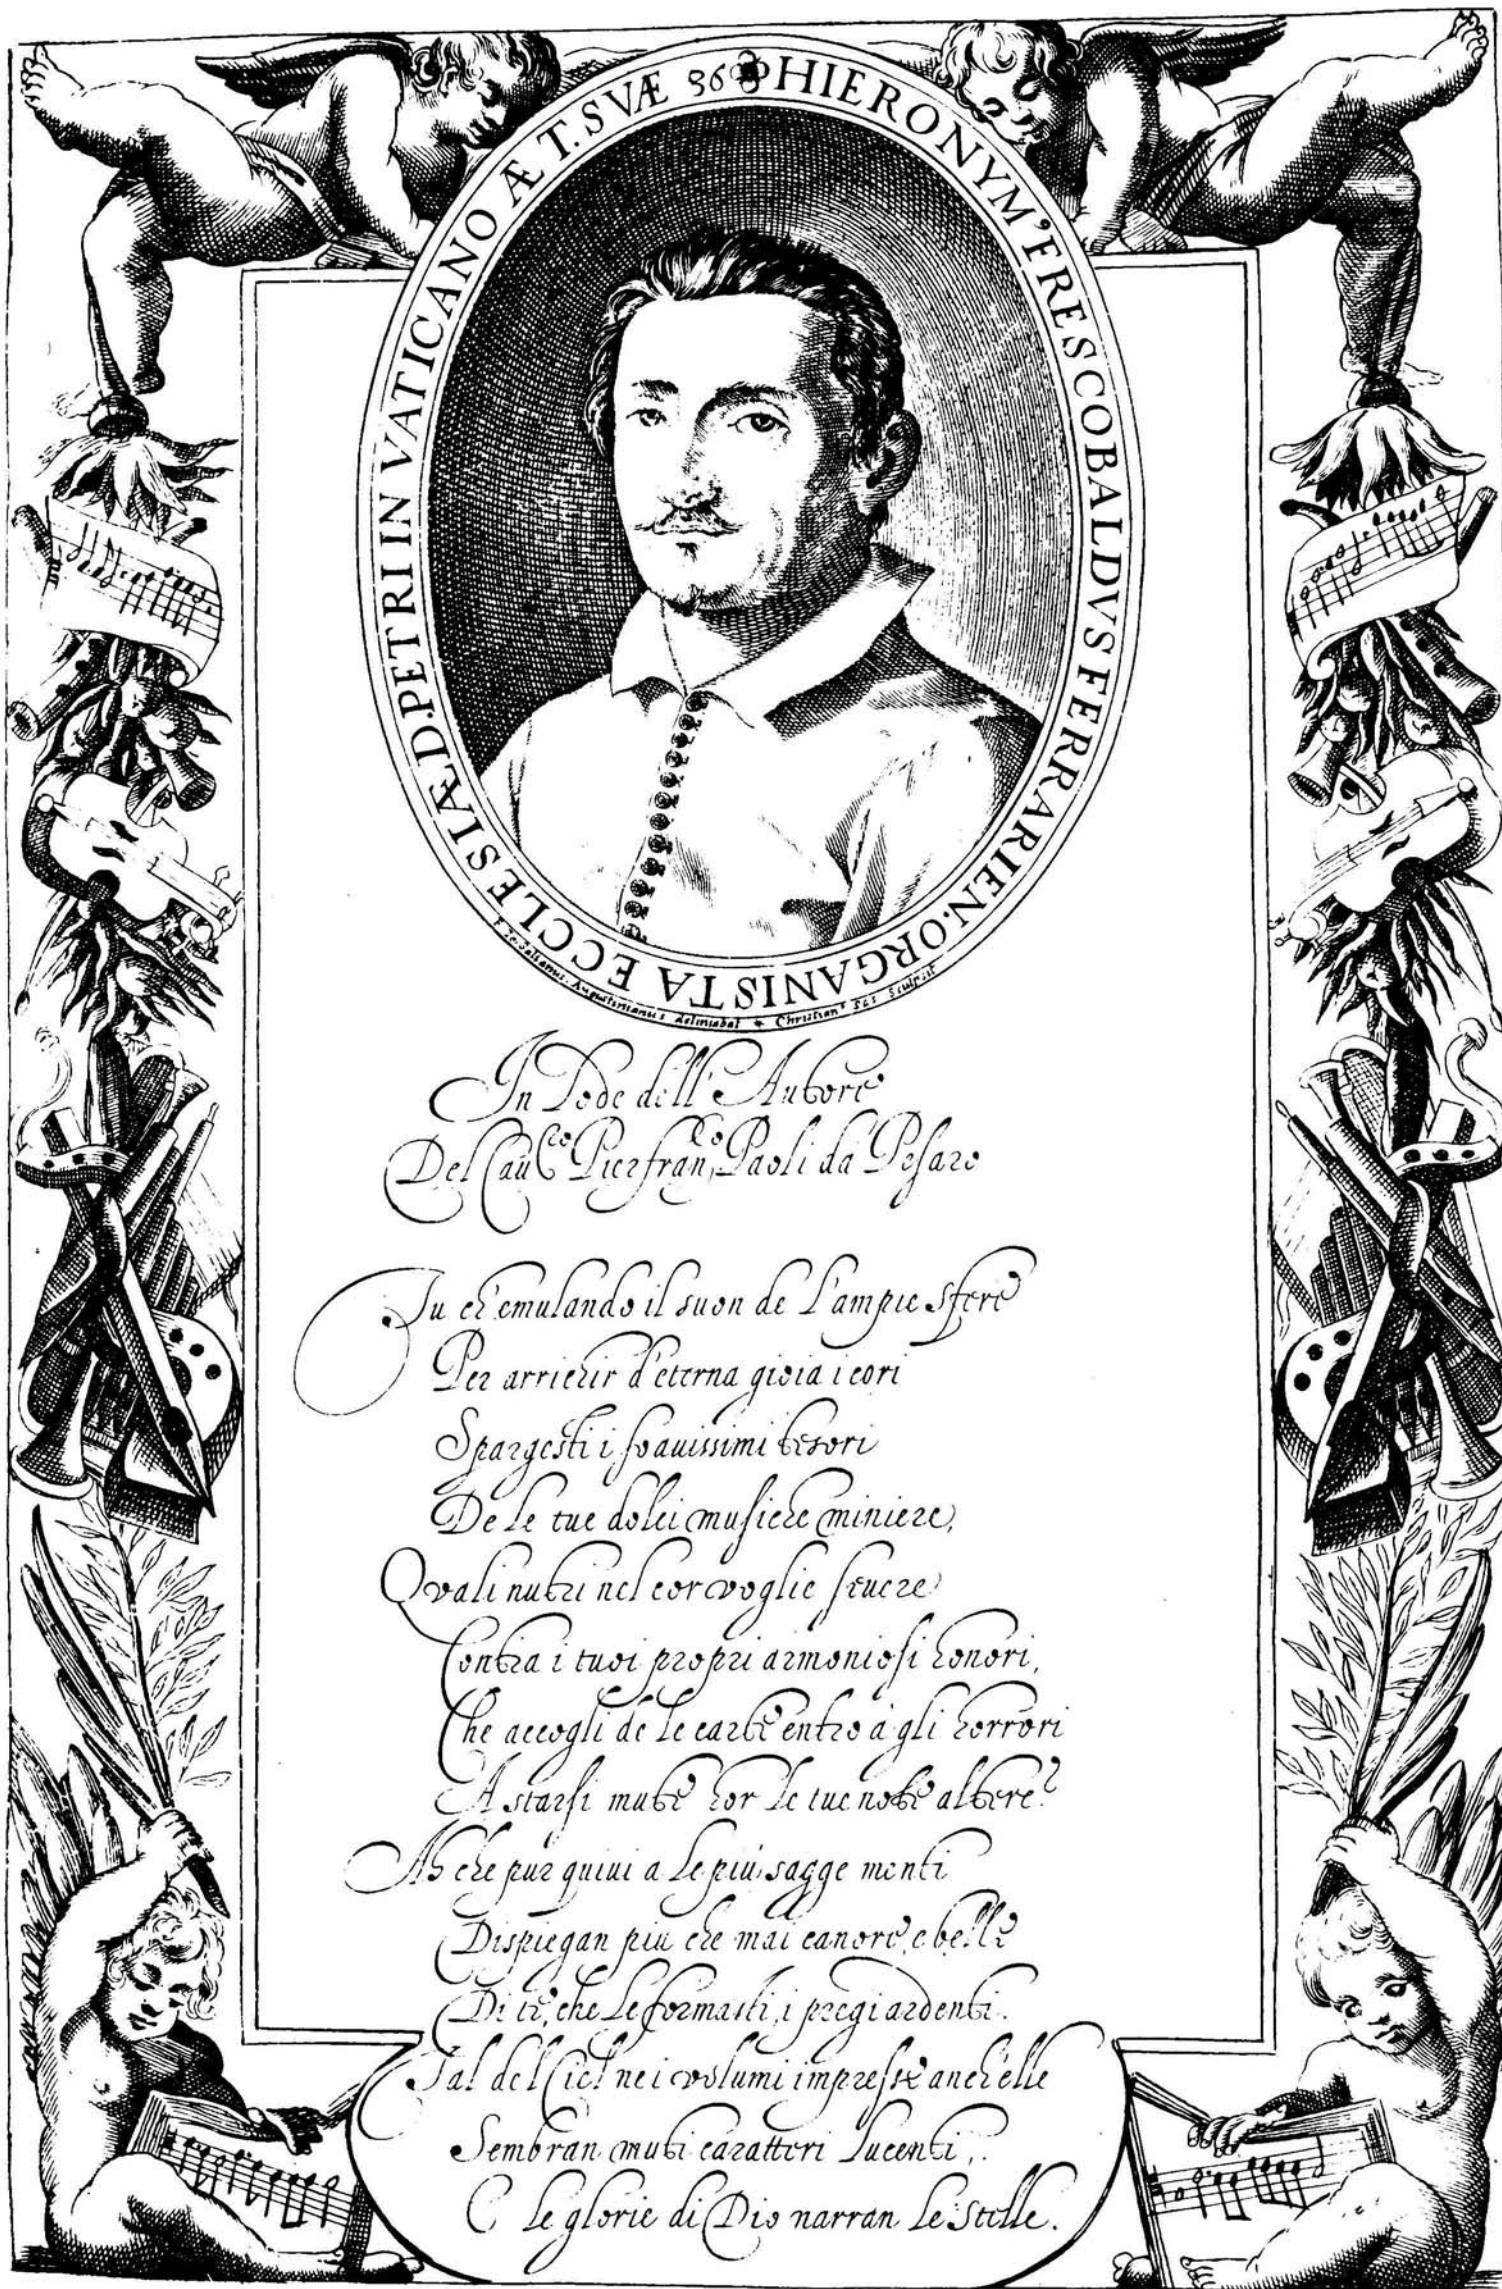 HIERONYM' FRESCOBALDVS FERRARIEN. ORGANISTA ECCLESIÆ D. PETRI IN VATICANO ÆT. SVÆ 36
F. Io. Salianus Augustinianus deliniabat * Christian' Sas Sculpsit
In Lode dell' Autore
Del Cau.re Pierfran.co Paoli da Pesaro
Tu ch' emulando il suon de l'ampie sfere
Per arrichir d'eterna gioia i cori
Spargesti i soauissimi tesori
De le tue dolci musiche miniere,
Quali nutri nel cor voglie seuere
Contra i tuoi propri armoniosi honori,
Che accogli de le carte entro à gli horrori
A starsi mute hor le tue note altere?
Ah che pur quiui a le più sagge menti
Dispiegan più che mai canore, e belle
Di te, che le formasti, i pregi ardenti.
Tal del Ciel nei volumi impresse anch'elle
Sembran muti caratteri lucenti,
E le glorie di Dio narran le stelle.